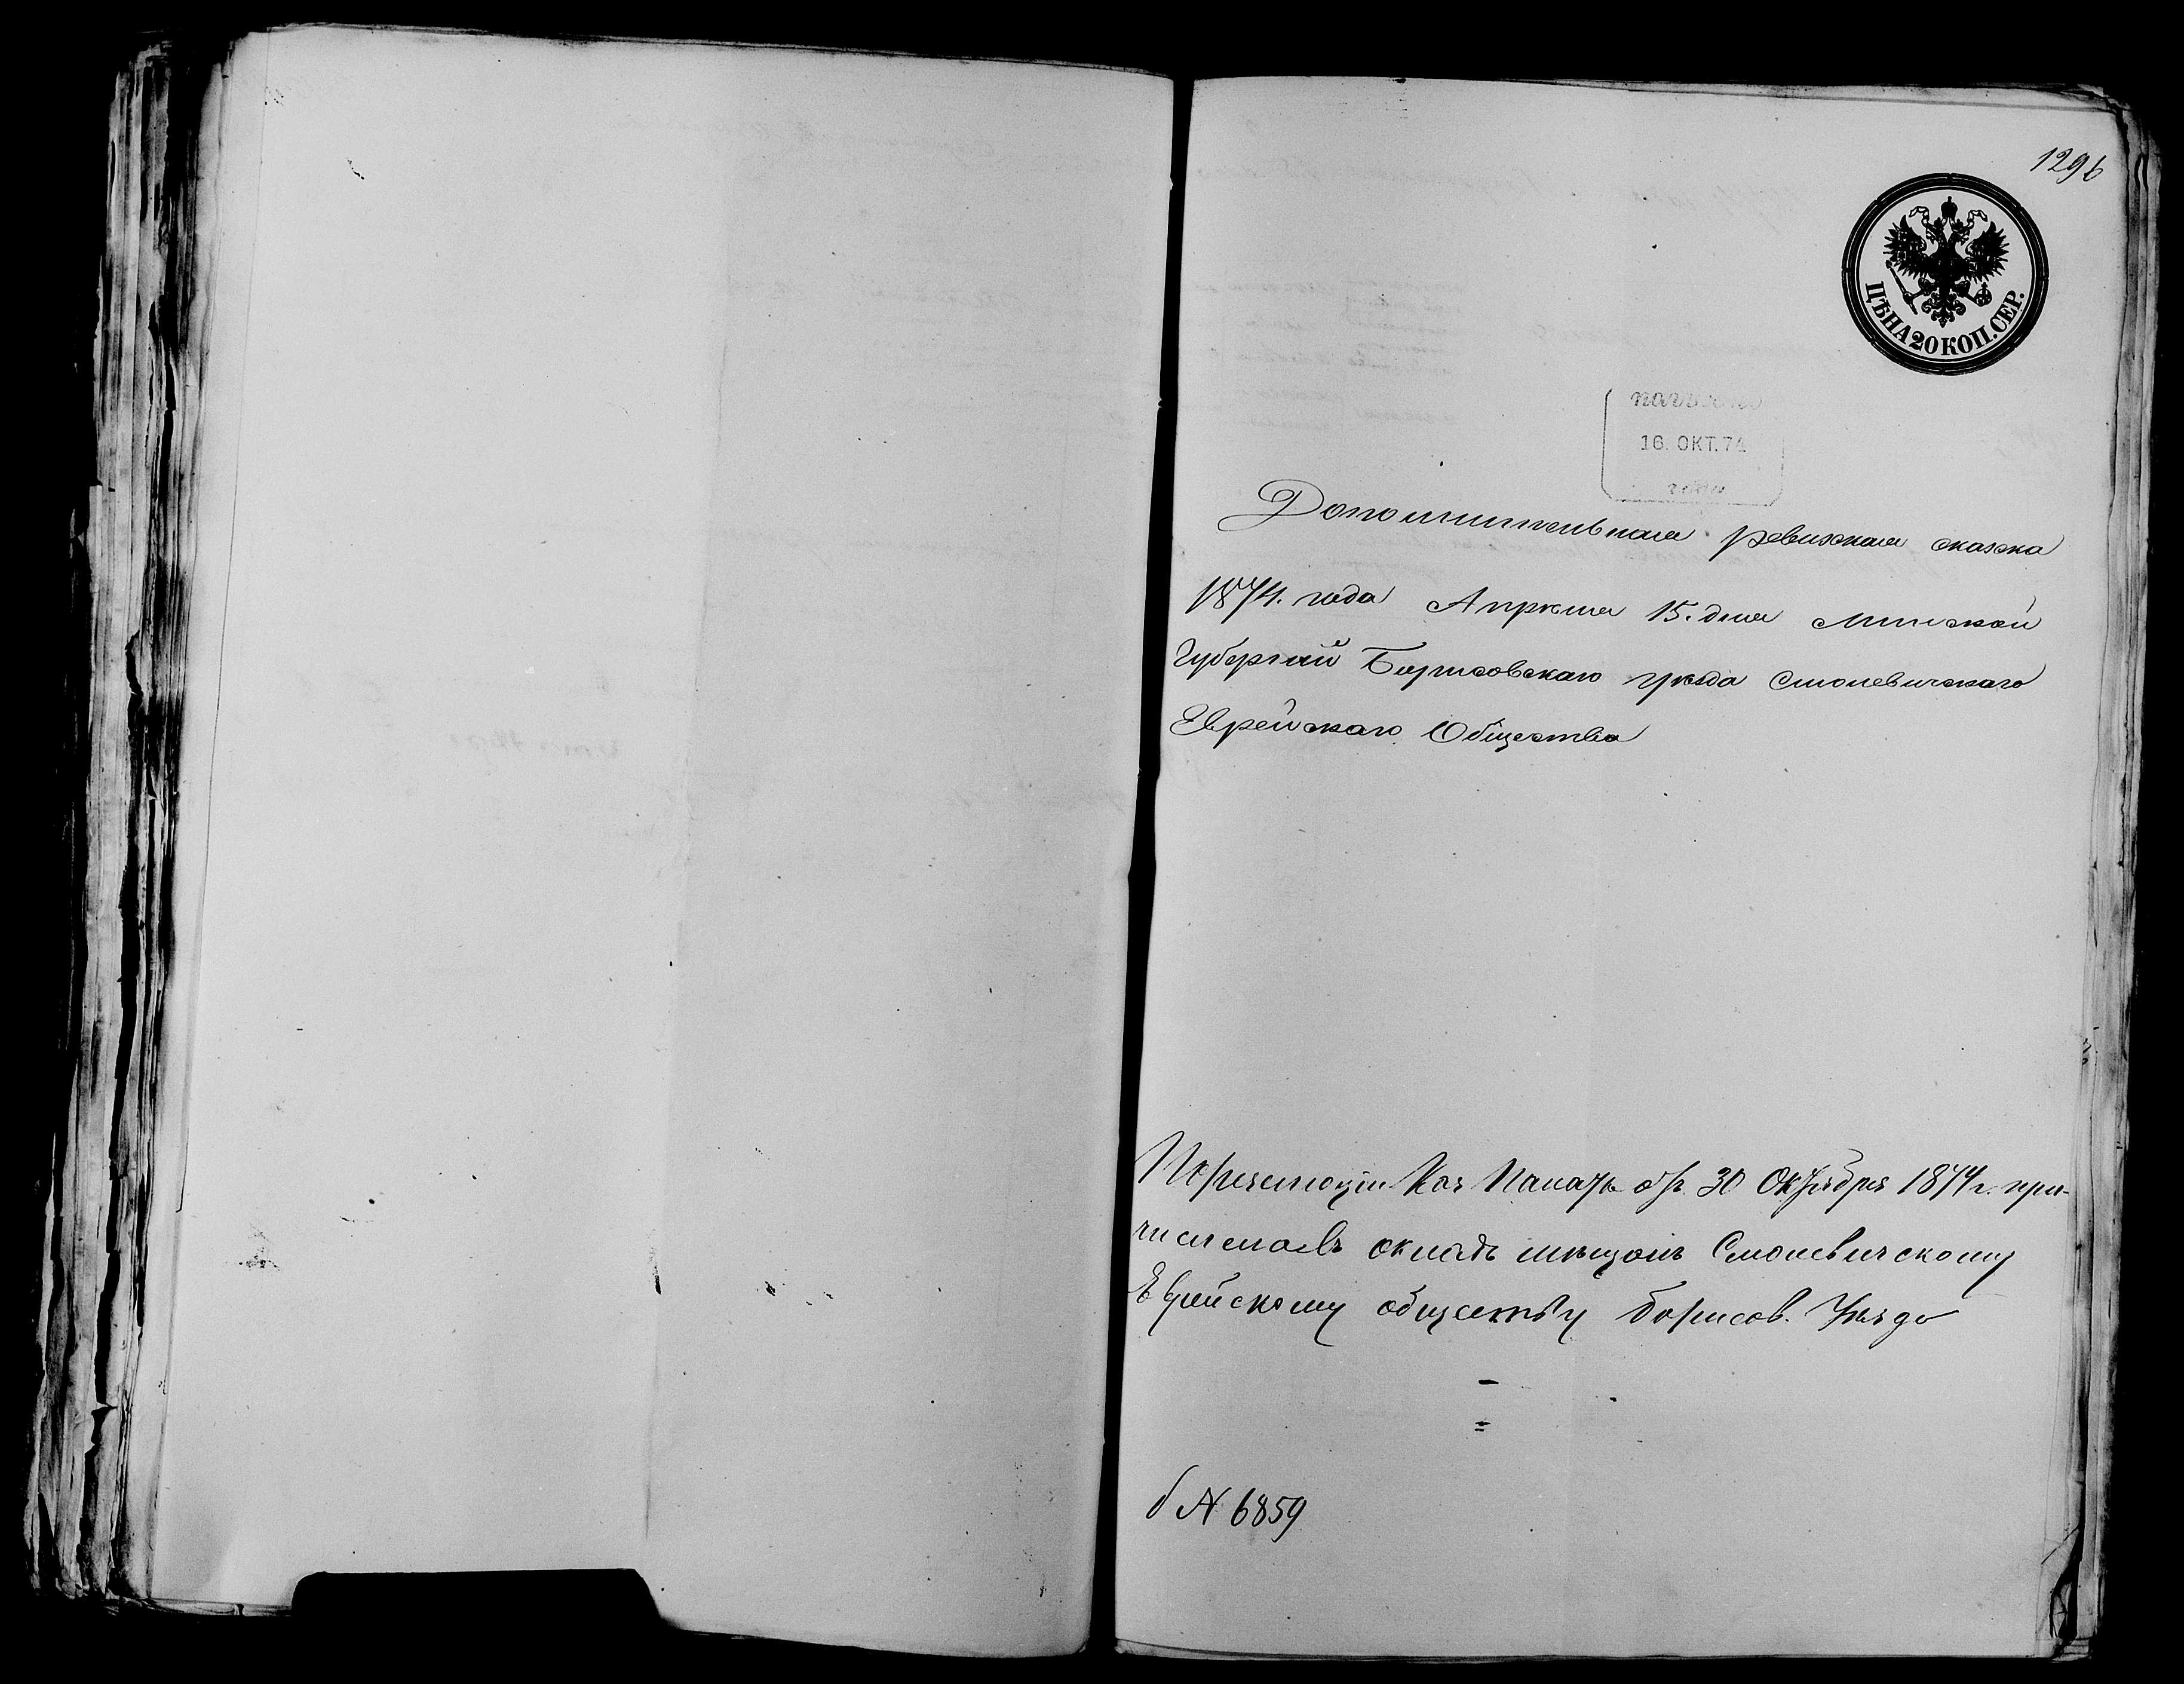 1296
ЦѢНА 20 КОП. СЕР.
16. ОКТ. 74
Дополнительная ревизская сказка
1874. года Апрѣля 15. дня Минской
Губерній Борисовскаго уѣзда Смолевичскаго
Еврейскаго Общества
По резолюціи Каз Палаты 30 Октября 1874 г. при-
численъ въ окладъ мѣщанъ Смолевичскому
Еврейскому обществу Борисов. Уѣзда
N 6859